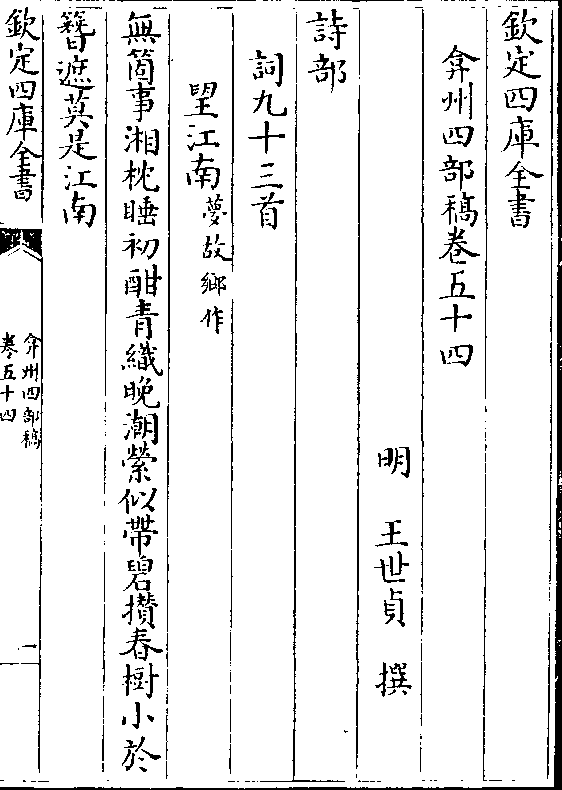 欽定四庫全書
弇州四部稿卷五十四
明　王世貞　撰
詩部
詞九十三首
望江南夢故鄉作
無箇事湘枕睡初酣青織晚潮縈似帶碧攅春樹小於
簮遮莫是江南
欽定四庫全書
弇州四部稿
卷五十四
一